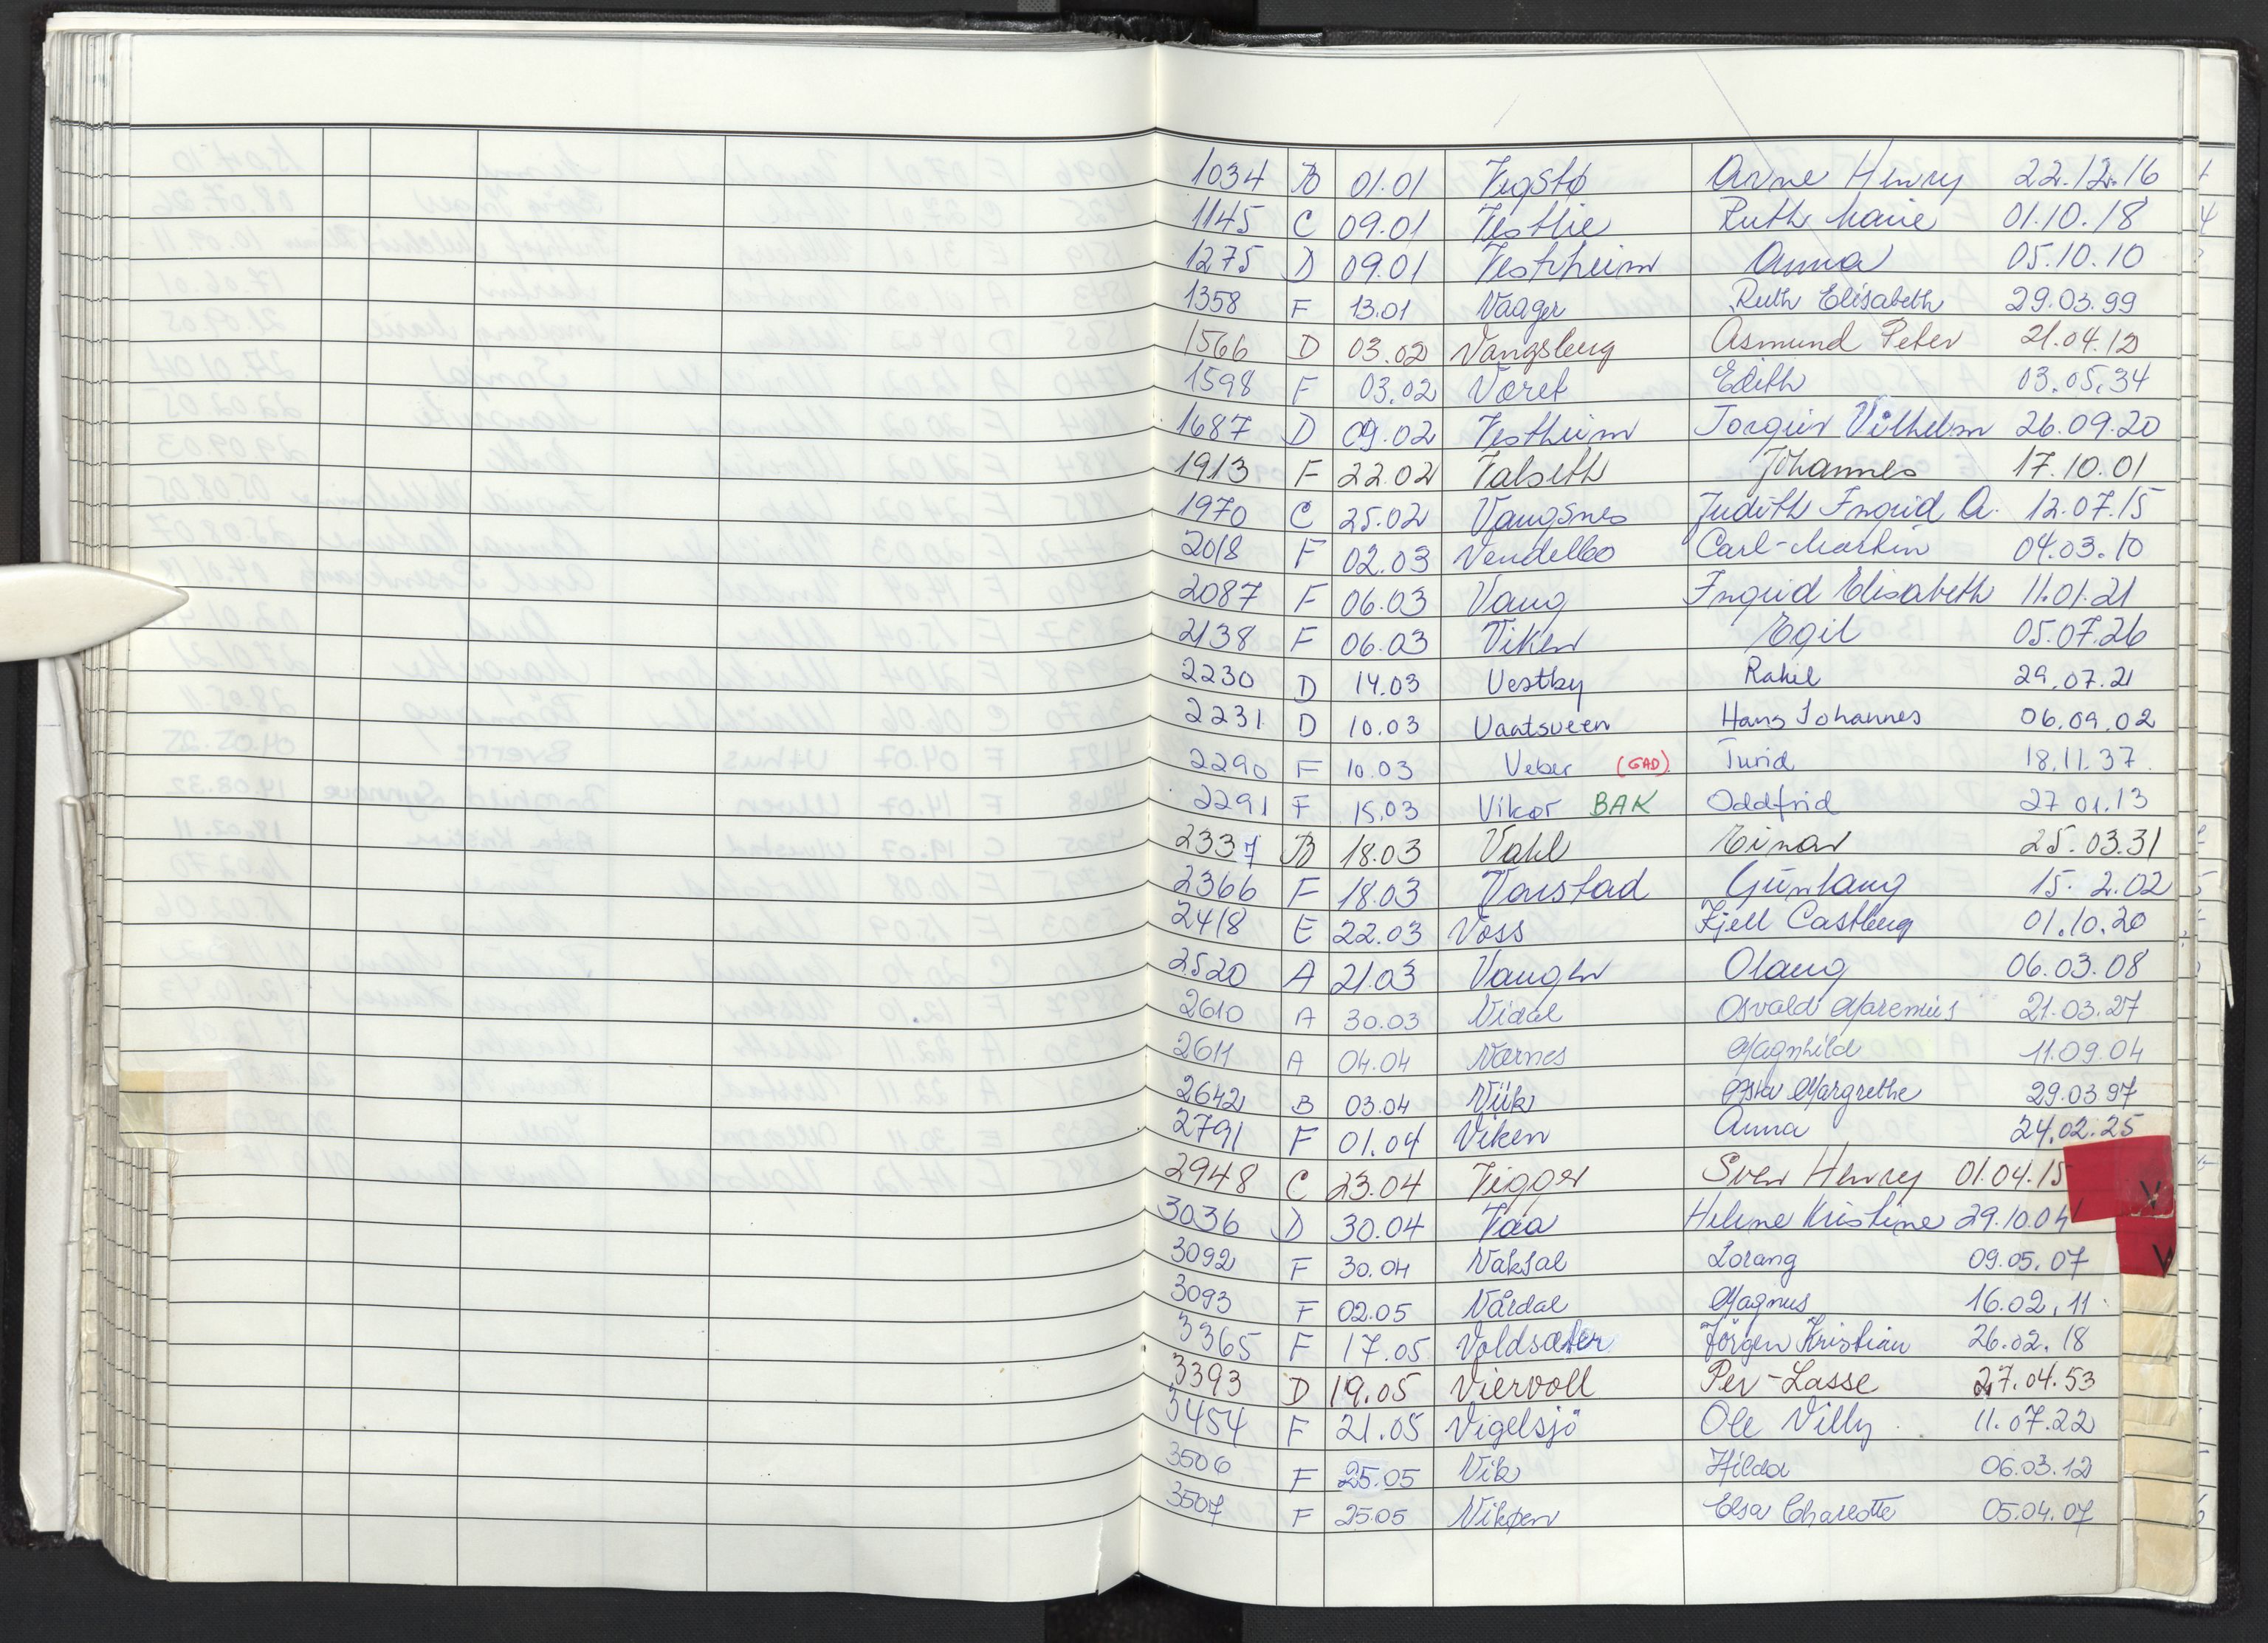 1034 B 01.01 Vegstø Arne Henry 22.12.16
1145 C 09.01 Vestlie Ruth Marie 01.10.18
1275 D 09.01 Vestrheim Anna 05.10.10
1358 F 13.01 Vaager Ruth Elisabeth 29.03.99
1566 D 03.02 Vangsberg Asmund Peter 21.04.12
1598 F 03.02 Været Edith 03.05.34
1687 D 09.02 Vestheim Torgeir Vilhelm 26.09.20
1913 F 22.02 Valseth Johannes 17.10.01
1970 C 25.02 Vangsnes Judith Ingrid A. 12.07.15
2018 F 02.03 Vendelbo Carl-Martin 04.03.10
2087 F 06.03 Vang Ingrid Elisabeth 11.01.21
2138 F 06.03 Viken Egil 05.07.26
2230 D 14.03 Vestby Rakel 29.07.21
2231 D 10.03 Vaatsveen Hans Johannes 06.09.02
2290 F 10.03 Veber (GAD) Turid 18.11.37
2291 F 15.03 Vikør BAK Oddfrid 27 01.13
2337 B 18.03 Vahl Einar 25.03.31
2366 F 18.03 Vorstad Gunlaug 15.2.02
2418 E 22.03 Voss Kjell Castberg 01.10.20
2520 A 21.03 Vangen Olaug 06.03.08
2610 A 30.03 Vidal Osvald Maremius 21.03.27
2611 A 04.04 Værnes Magnhild 11.09.04
2642 B 03.04 Viik Margrethe 29.03 97
2791 F 01.04 Viken Anna 24.02.25
2948 C 23.04 Vigger Sven Henry 01.04.15
V
3036 D 30.04 Vaa Helene Kristine 29.10.04
3092 F 30.04 Vaksal Lorang 09.05.07
V
3093 F 02.05 Vårdal Magnus 16.02.11
3365 F 17.05 Voldsæter Jörgen Kristian 26.02.18
3393 D 19.05 Viervoll Per-Lasse 27.04.53
3454 F 21.05 Vigelsjö Ole Villy 11.07.22
3506 F 25.05 Vik Hilda 06.03.12
3507 F 25.05 Vikøen Elsa Charlotte 05.04.07